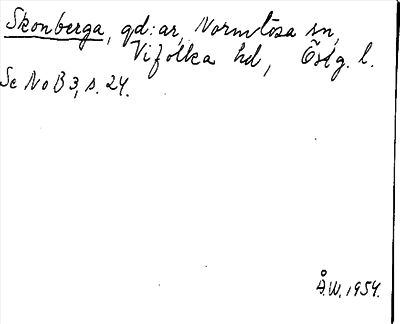 Skonberga, gd:ar, Normlösa sn,
Vifolka hd, Östg. l.
Se NoB 3, s. 24.
Å.W. 1954.